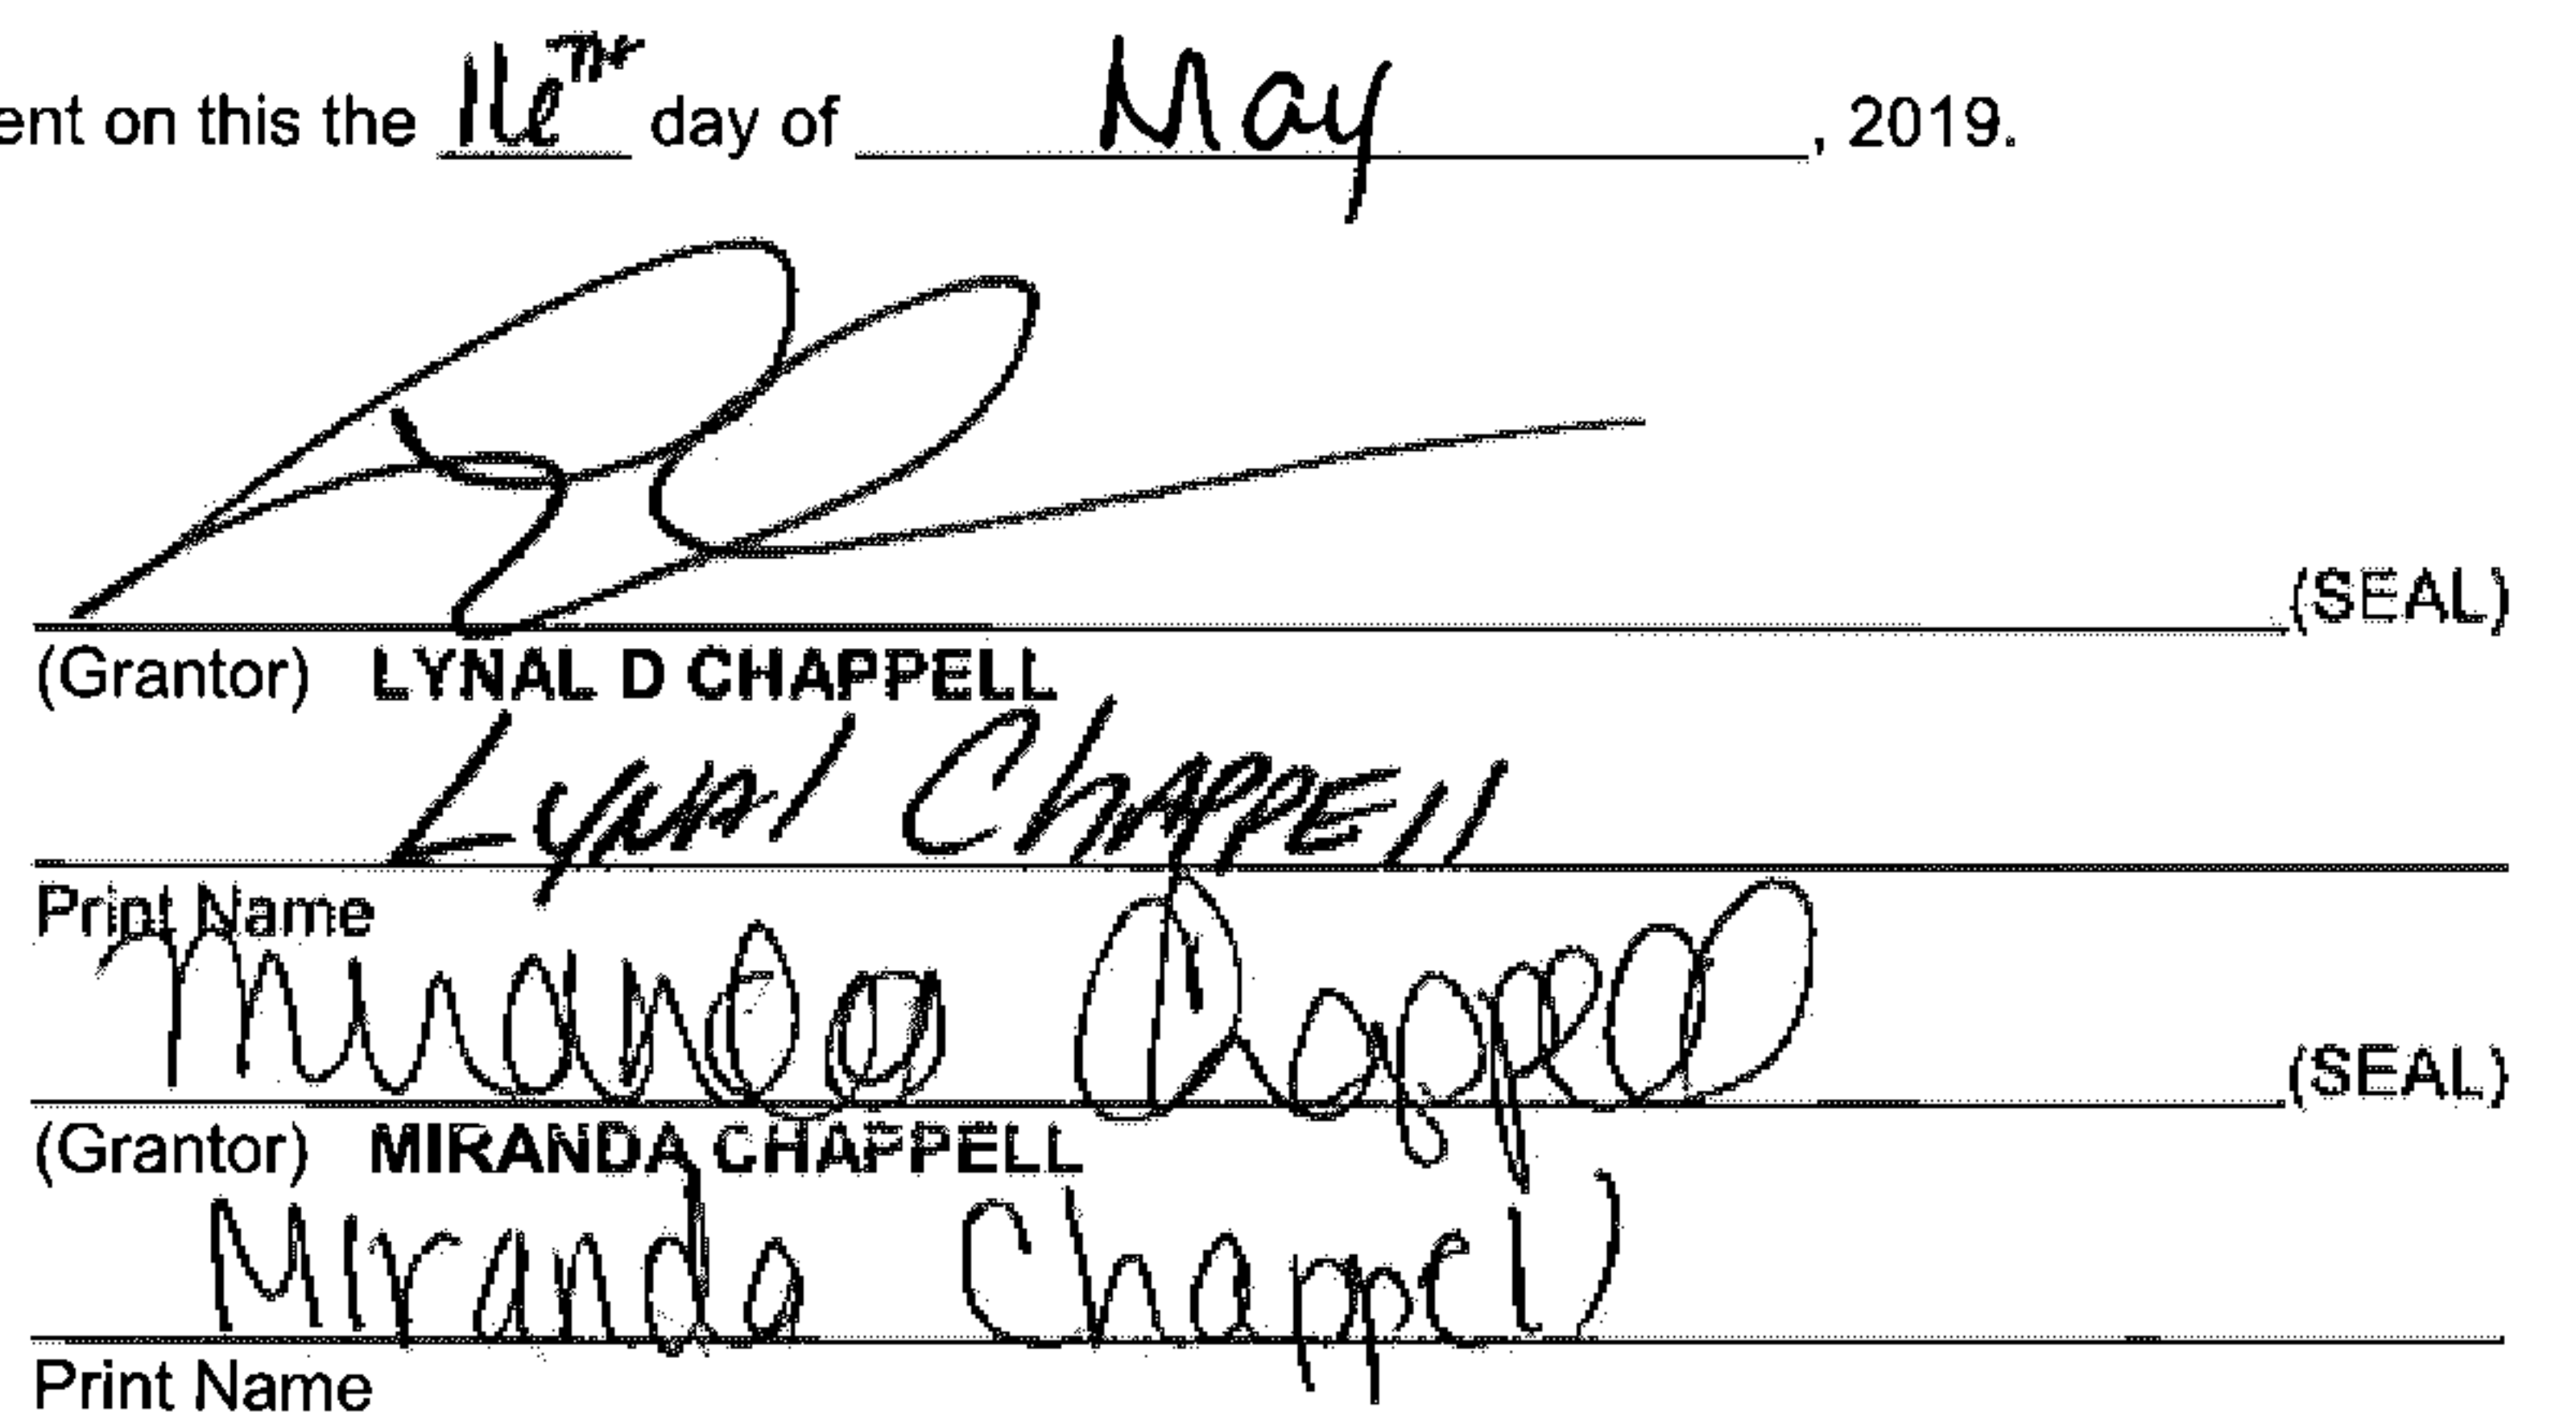 ent on this the 16TH day of May, 2019.
(SEAL)
(Grantor) LYNAL D CHAPPELL
Lynal Chappell
Print Name
Miranda Chappell (SEAL)
(Grantor) MIRANDA CHAPPELL
Miranda Chappell
Print Name